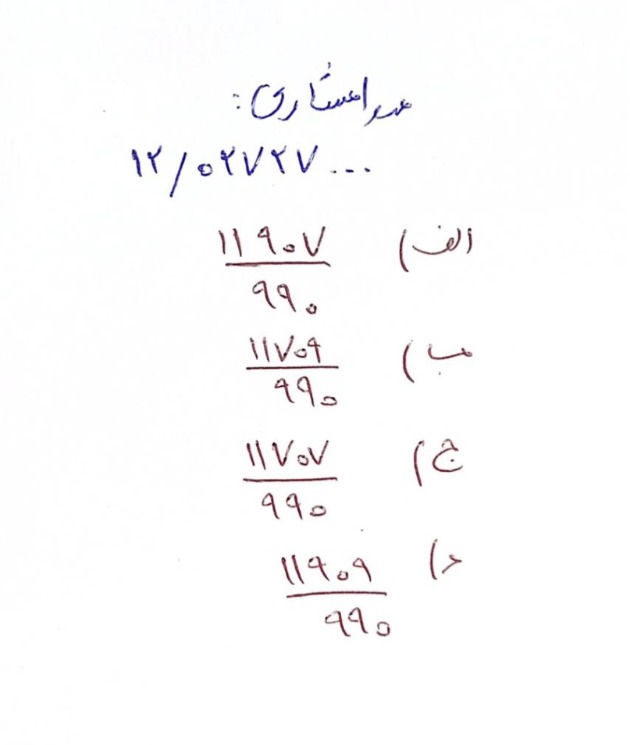 عدد اعشاری:
۱۲/۰۲۷۲۷...
الف) ۱۱۹۰۷/۹۹۰
ب) ۱۱۷۰۹/۹۹۰
ج) ۱۱۷۰۷/۹۹۰
د) ۱۱۹۰۹/۹۹۰